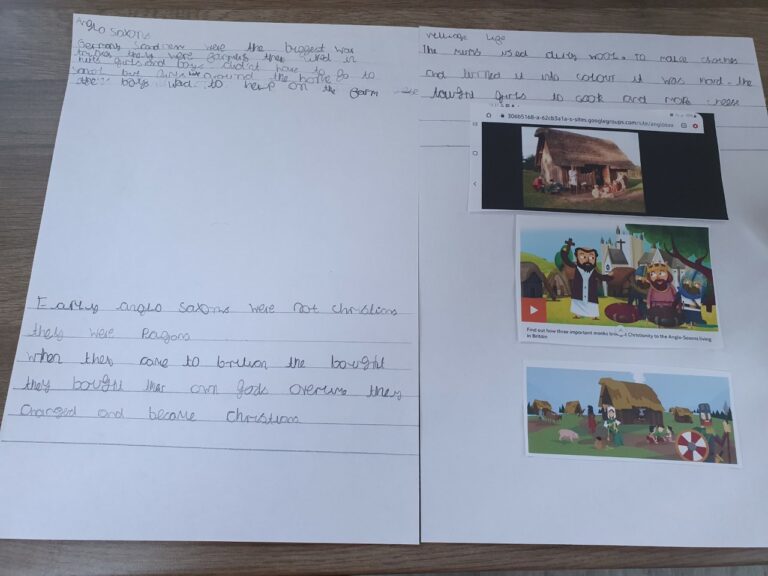 Anglo saxons
Germany were the biggest war
tribes they were farmers they lived in
huts girls and boys didnt have to go to
around the home
the boys had to help on the farm
Early anglo saxons were not christians
they were Pagans
when they came to the bought
they bought their own gods overtime they
changed and became christians
village life
the mums used clothes
and turned it into colour it was hard the
taught girls to cook and
306b5168-a-62cb3a1a-s-sites.googlegroups.com/site/anglosax
Find out how three important monks brought Christianity to the Anglo-Saxons living
in Britain